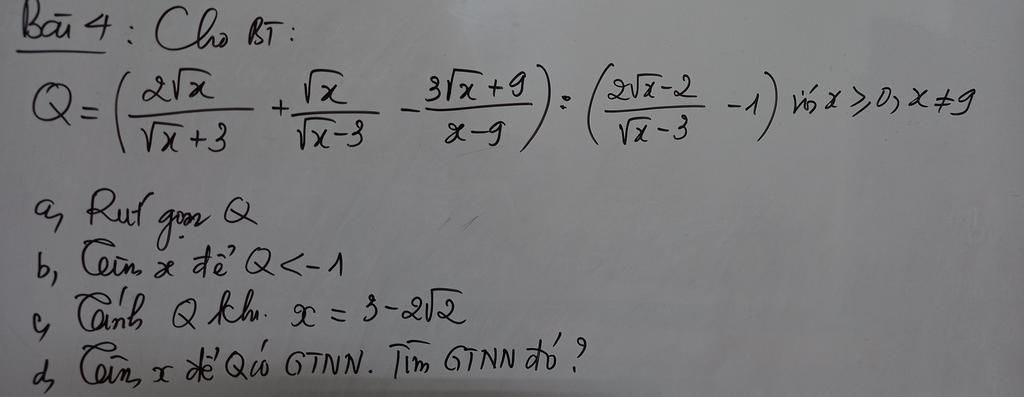 Bài 4 : Cho BT :
Q = ( 2√x / (√x + 3) + √x / (√x - 3) - (3√x + 9) / (x - 9) ) : ( (2√x - 2) / (√x - 3) - 1 ) với x ≥ 0, x ≠ 9
a, Rút gọn Q
b, Tìm x để Q < -1
c, Tính Q khi x = 3 - 2√2
d, Tìm x để Q có GTNN. Tìm GTNN đó ?